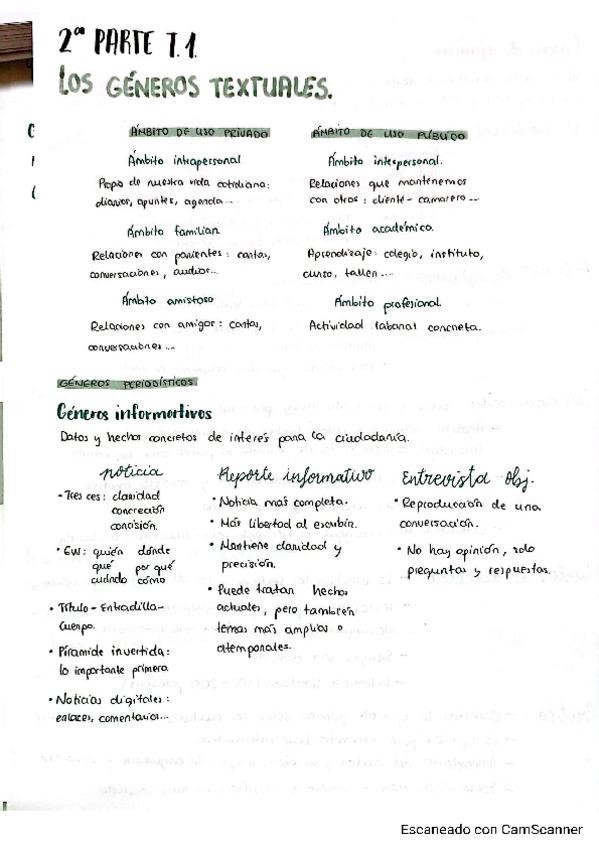 2ª PARTE T.1.
LOS GÉNEROS TEXTUALES.
ÁMBITO DE USO PRIVADO
Ámbito intrapersonal
Propio de nuestra vida cotidiana:
diarios, apuntes, agenda...
Ámbito familiar
Relaciones con parientes: cartas,
conversaciones, audios...
Ámbito amistoso
Relaciones con amigos: cartas,
conversaciones...
ÁMBITO DE USO PÚBLICO
Ámbito interpersonal.
Relaciones que mantenemos
con otros: cliente-camarero...
Ámbito académico.
Aprendizaje: colegio, instituto,
curso, taller...
Ámbito profesional.
Actividad laboral concreta.
GÉNEROS PERIODÍSTICOS
Géneros informativos
Datos y hechos concretos de interés para la ciudadanía.
noticia
- Tres ces: claridad
concreción
concisión.
· 6W: quién dónde
qué por qué
cuándo cómo
· Título - Entradilla -
Cuerpo.
· Pirámide invertida:
lo importante primero.
· Noticias digitales:
enlaces, comentarios...
Reporte informativo
· Noticia más completa.
· Más libertad al escribir.
· Mantiene claridad y
precisión.
· Puede tratar hechos
actuales, pero también
temas más amplios o
atemporales.
Entrevista obj.
· Reproducción de una
conversación.
· No hay opinión, solo
preguntas y respuestas.
Escaneado con CamScanner